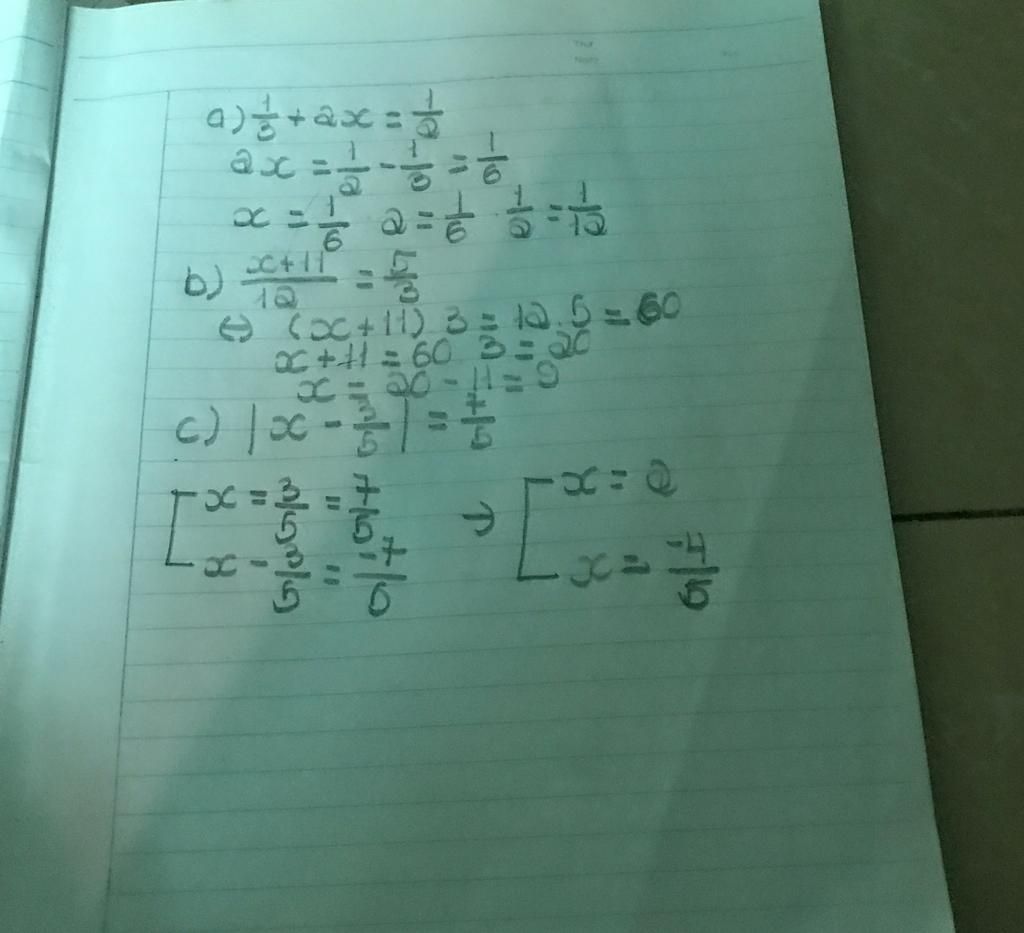 a) 1/3 + 2x = 1/2
2x = 1/2 - 1/3 = 1/6
x = 1/6 2 = 1/6 . 1/2 = 1/12
b) x+11/12 = 5/3
⇔ (x+11) 3 = 12.5 = 60
x+11 = 60 3 = 20
x = 20 - 11 = 9
c) |x - 3/5| = 7/5
[ x = 3/5 = 7/5 → [ x = 2
x - 3/5 = -7/5 x = -4/5